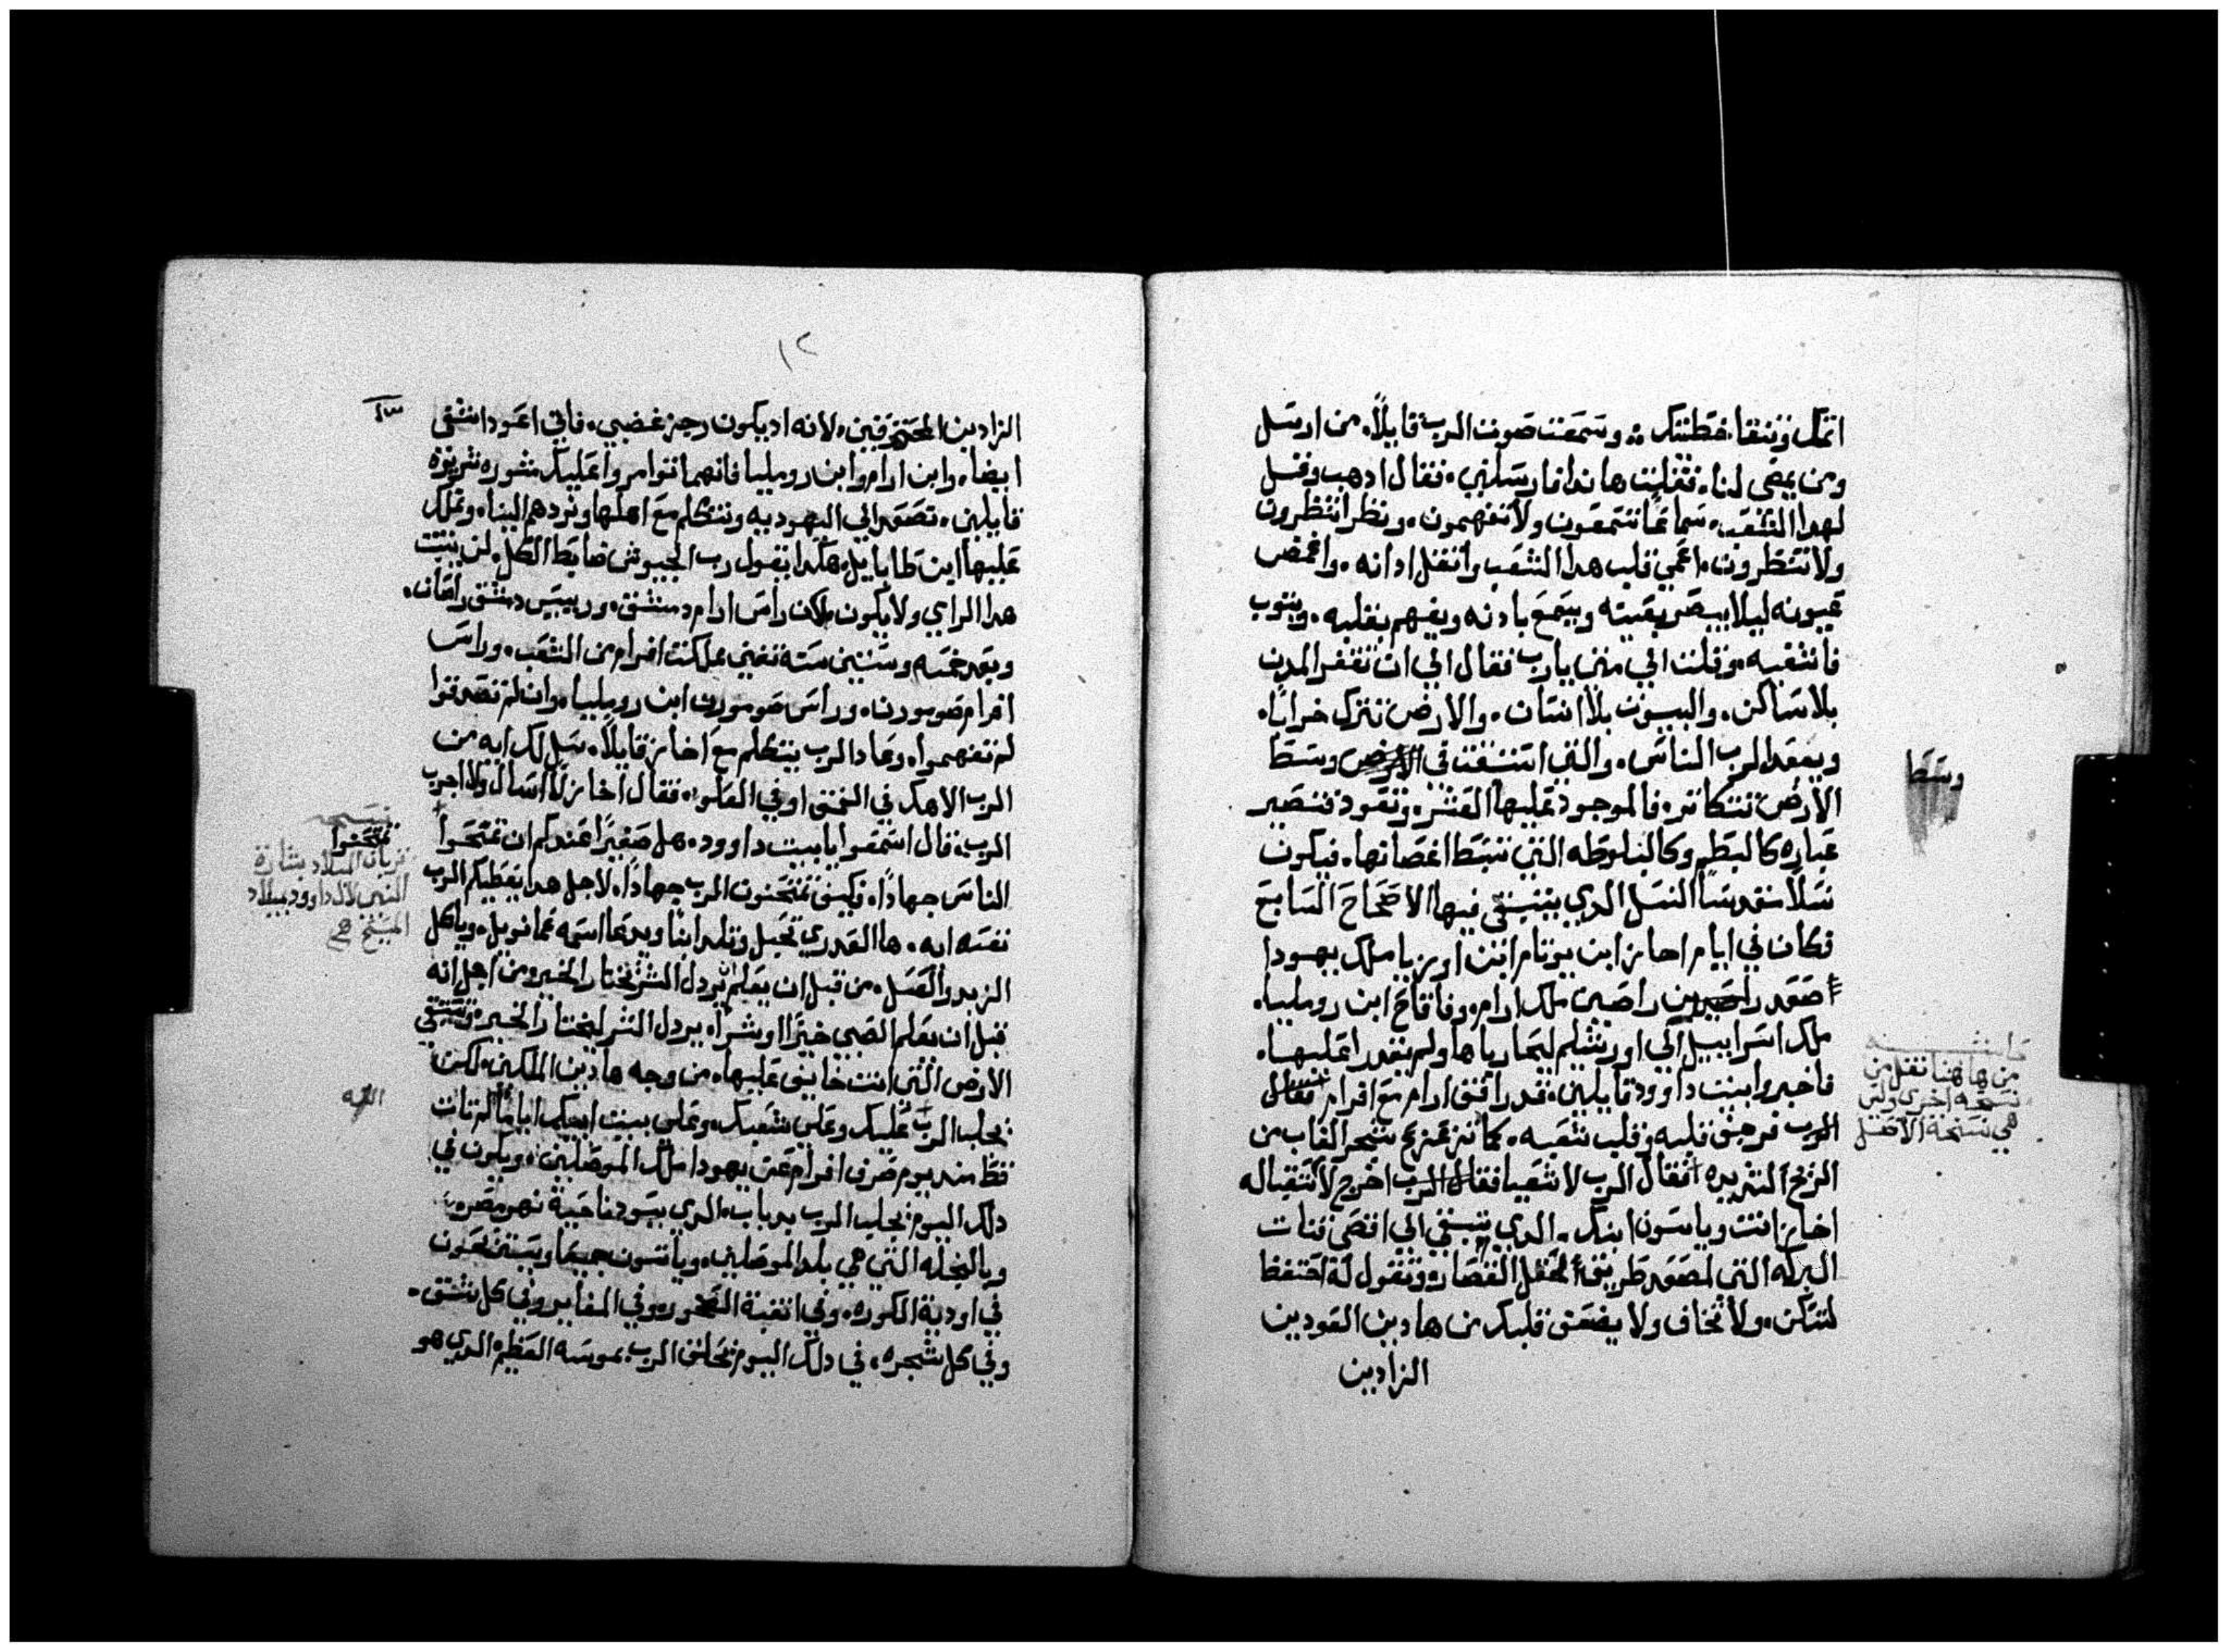 اتمك وتنقا خطيتك ؞ وسمعت صوت الرب قايلاً، من ارسل
ومن يمضى لنا، فقليت هاندا فارسلني، فقال ادهب وقل
لهدا الشعب، سماعًا تسمعون ولا تفهمون، ونظرا تنظرون
ولا تنظرون، اعمي قلب هدا الشعب واتقل ادانه، واغمض
عيونه ليلا يبصر بعينه ويسمع بادنه ويفهم بقلبه، ويتوب
فاشفيه، وقلت الي متى يارب فقال الي ان تقفر المدن
بلا ساكن، والبيوت بلا انسان، والارض تترك خرابًا،
ويبعد الرب الناس، والتي استبقت في الارض وسط
وسط
الارض تتكاتر، فالموجود عليها العشر، وتعود فتصير
غباره كالبطم وكالبلوطه التي تبسط اغصانها، فيكون
نسلاً مقدسًا النسل الدي يتبقي فيها الاصحاح السابع
فكان في ايام احاز ابن يوتام ابن اوزيا ملك يهودا
صعد راصين ملك ارام، وفاقاح ابن روميليا،
ملك اسراييل الي اورشليم ليحارباها ولم يقدرا عليها،
حاشيه
من هاهنا نقل من
نسخه اخرى وليس
هي نسخة الاصل
فاخبروا بيت داوود قايلين، قد رافق ارام مع افرام
فرجف قلبه وقلب شعبه، كما تزعزع شجر الغاب من
الريح الشديده فقال الرب لاشعيا اخرج لاستقباله
احاز انت وياسون ابنك، الدي تبقي الي اقصى قنات
البركه التي لمصعد طريق حقل القصار، وتقول له احتفظ
لتسكن، ولا تخاف ولا يضعف قلبك من هادين العودين
الزادين
١٢
الزادين المحترقين، لانه اد يكون رجز غضبي، فاني اعود اشفى
ايضا، وابن ارام وابن روميليا فانهما اتوامروا عليك مشوره شريره
قايلين، نصعد الي اليهوديه ونتكلم مع اهلها ونردهم الينا، ونملك
عليها ابن طابايل، هكدا يقول رب الجيوش ضابط الكل، لن يثبت
هدا الراي ولا يكون، لكن راس ارام دمشق، ورييس دمشق راصان،
وبعد خمسه وستين سنة تفنى مملكت افرام من الشعب، وراس
افرام صومورن، وراس صومورن ابن روميليا، وان لم تصدقوا
لم تفهموا، وعاد الرب يتكلم مع احاز قايلاً، سل لك ايه من
الرب الاهك في العمق او في العلو، فقال احاز لا اسال ولا اجرب
الرب، قال اسمعوا يا بيت داوود، هل صغيرًا عندكم ان تمتحنوا
تمتحنوا
الناس جهادًا، فكيف تمتحنون الرب جهادًا، لاجل هدا يعطيكم الرب
نفسه ايه، ها العدري تحبل وتلد ابنًا ويدعا اسمه عمانويل، وياكل
الزبد والعسل، من قبل ان يعلم يردل الشر يختار الخير، من اجل انه
قبل ان يعلم الصبي خيرًا او شرًا، يردل الشر ليختار الخير،
الارض التي انت خايف عليها، من وجه هادين الملكين، لكن
يجلب الرب عليك وعلى شعبك، وعلى بيت ابيك ايامًا لم تات
الله
قط مند يوم صرف افرام عن يهودا ملك الموصليين، ويكون في
دلك اليوم يجلب الرب بدباب، الدي يسود ناحية نهر مصر،
وبالنحله التي هي بلد الموصليين، وياتون جميعا ويستريحون
في اودية الكوره، وفي اتقبة الصخور، وفي المغاير وفي كل شق،
وفي كل شجره، في دلك اليوم يحلق الرب بموسه العظيم الدي هو